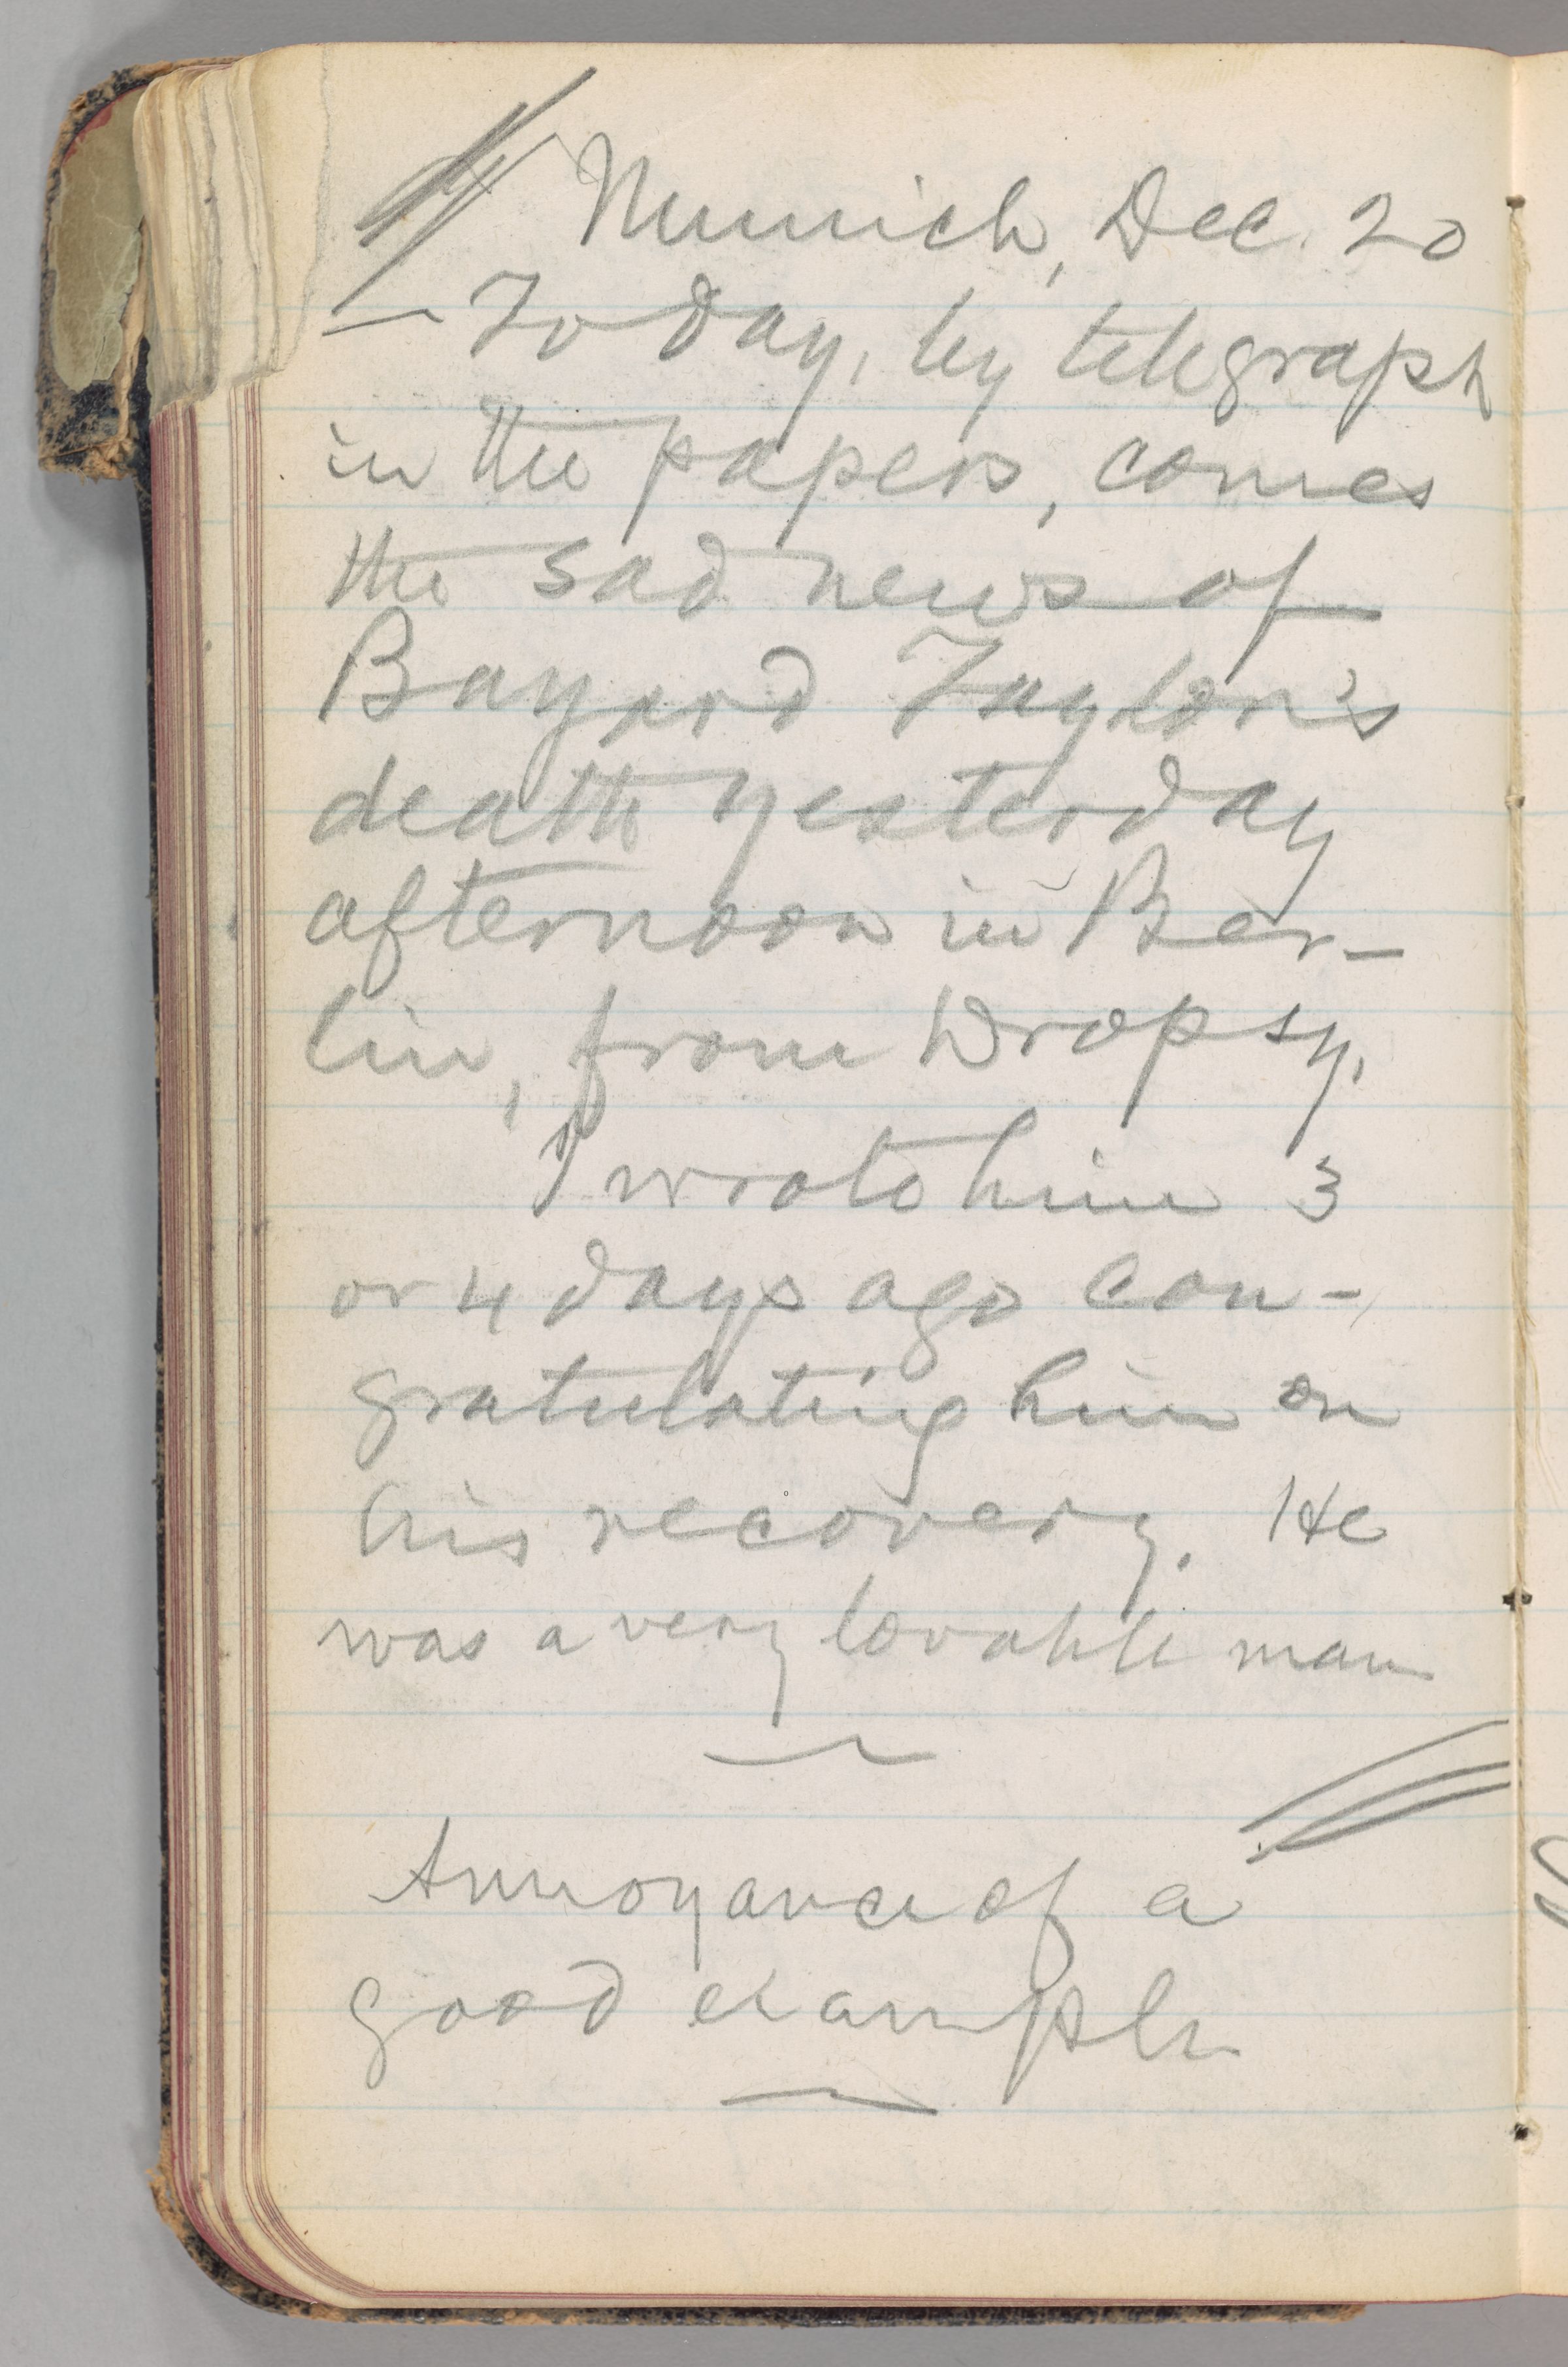 Munich, Dec. 20
— Today, by telegraph
in the papers, comes
the sad news of
Bayard Taylor's
death yesterday
afternoon in Ber-
lin, from dropsy.
I wrote him 3
or 4 days ago con-
gratulating him on
his recovery. He
was a very lovable man
Annoyance of a
good example